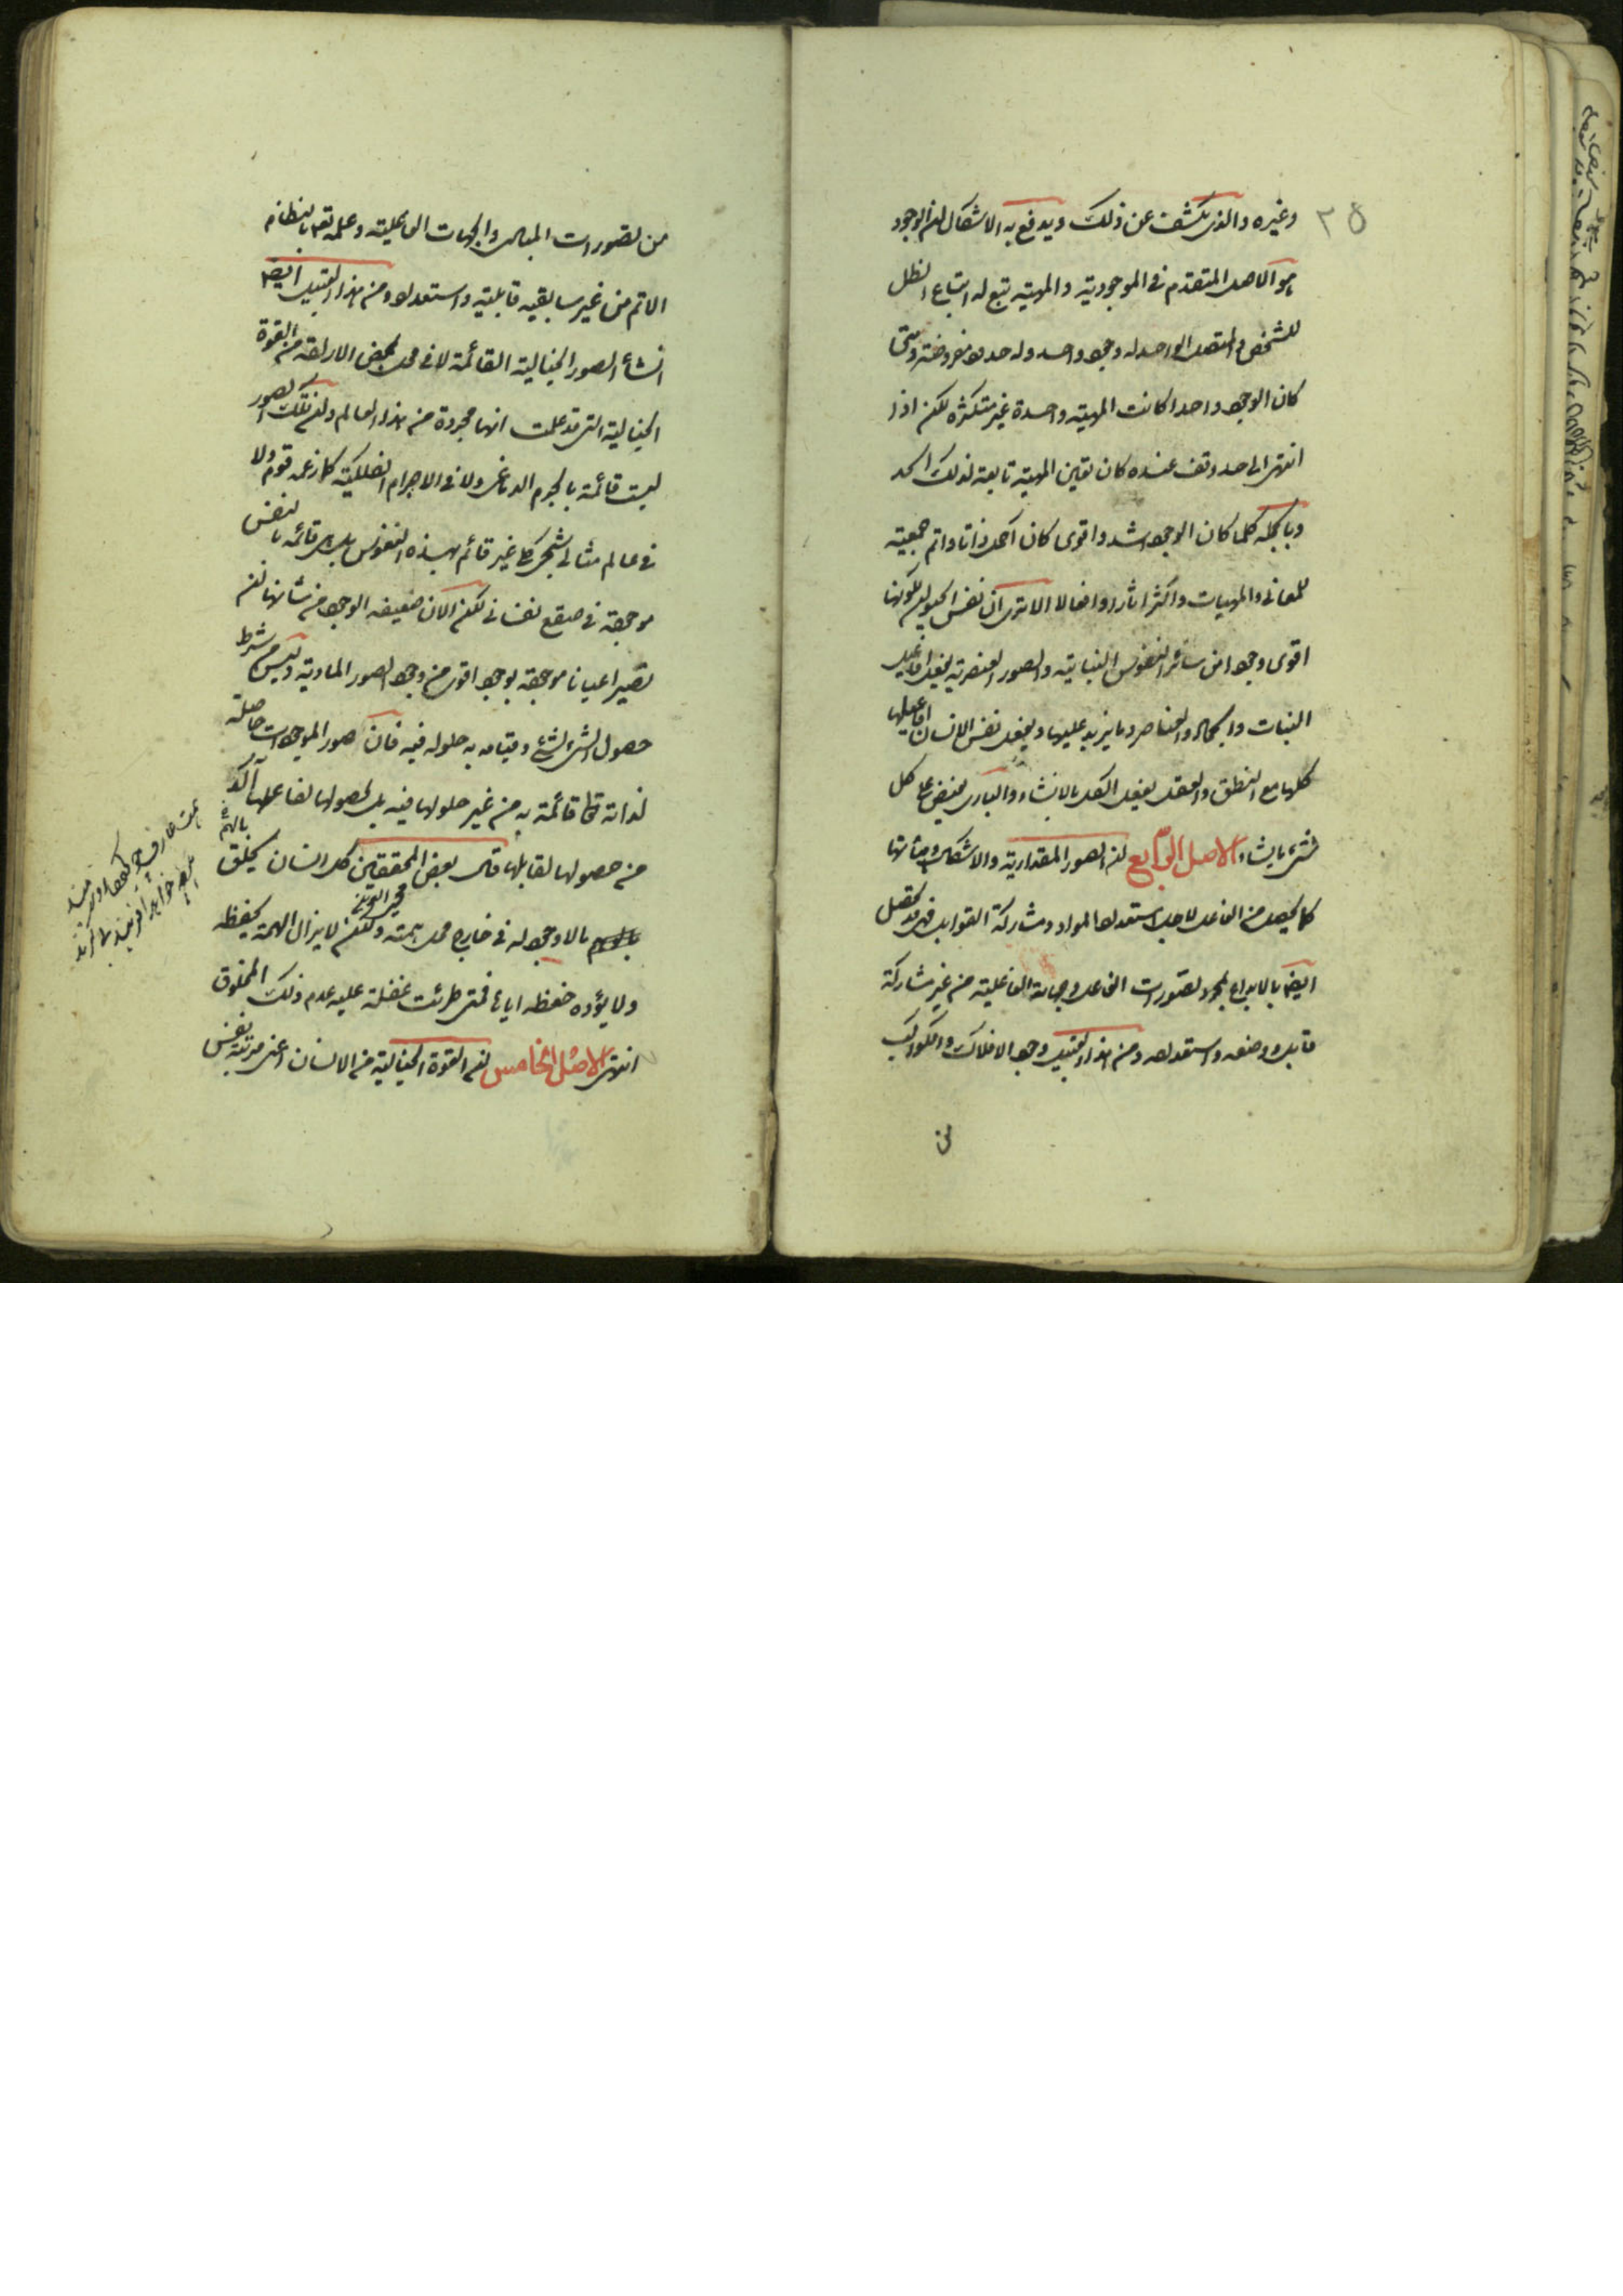 ٣٥
وغيره والذى يكشف عن ذلك ويدفع به الاشكال ان الوجود
هو الاصل المتقدم فى الموجودية والمهية تتبع له اتباع الظل
للشخص والمتصل الواحد له وجود واحد وله حدود مفروضة ومتى
كان الوجود واحدا كانت المهية واحدة غير متكثره لكن اذا
انتهى الى حد وقف عنده كان تعين المهية تابعة لذلك الحد
وبالجمله كلما كان الوجود اشد واقوى كان اكمل ذاتا واتم جمعية
للمعانى والمهيات واكثر اثارا وافعالا الا ترى ان نفس الحيوان لكونها
اقوى وجودا من سائر النفوس النباتية والصور العنصرية يفعل افاعيل
النبات والجماد والعناصر وما يزيد عليها ويفعل نفس الانسان افاعيلها
كلها مع النطق والعقل يفعل الكل بالانشاء والبارى يفيض على كل
شىء ما يشاء الاصل الرابع ان الصور المقدارية والاشكال وهيأتها
كما يحصل من الفاعل لاجل استعداد المواد ومشاركة القوابل فهى قد تحصل
ايضا بالابداع بمجرد تصورات الفاعل وجهاته الفاعلية من غير مشاركة
قابل ووضعه واستعداده ومن هذا القبيل وجود الافلاك والكواكب
من
من تصورات المبادى والجهات الفاعلية وعلمه تعالى بالنظام
الاتم من غير سابقيه قابلية واستعداد ومن هذا القبيل ايضا
انشاء الصور الخيالية القائمة لا فى محل بمحض الارادة من القوة
الخيالية التى قد علمت انها مجردة من هذا العالم وان تلك الصور
ليست قائمة بالجرم الدماغى ولا فى الاجرام الفلكية كما زعمه قوم ولا
فى عالم مثالى شبحى غير قائم بهذه النفوس بل هى قائمه بالنفس
موجودة فى صقع نفسانى لكن الان ضعيفه الوجود من شانها ان
تصير اعيانا موجودة بوجود اقوى من وجود الصور المادية وليس من شرط
حصول الشىء لشىء وقيامه به حلوله فيه فان صور الموجودات حاصلة
لذاته تعالى قائمة به من غير حلولها فيه بل حصولها لفاعلها آكد
من حصولها لقابلها قال بعض المحققين كل انسان يخلق
بالهمة
محيى الدين
بالوهم ما لا وجود له فى خارج محل همته ولكن لا يزال الهمة يحفظه
ولا يؤده حفظه اياها فمتى طرئت غفلة عليه عدم ذلك المخلوق
انتهى الاصل الخامس ان القوة الخيالية من الانسان اعنى مرتبة نفس